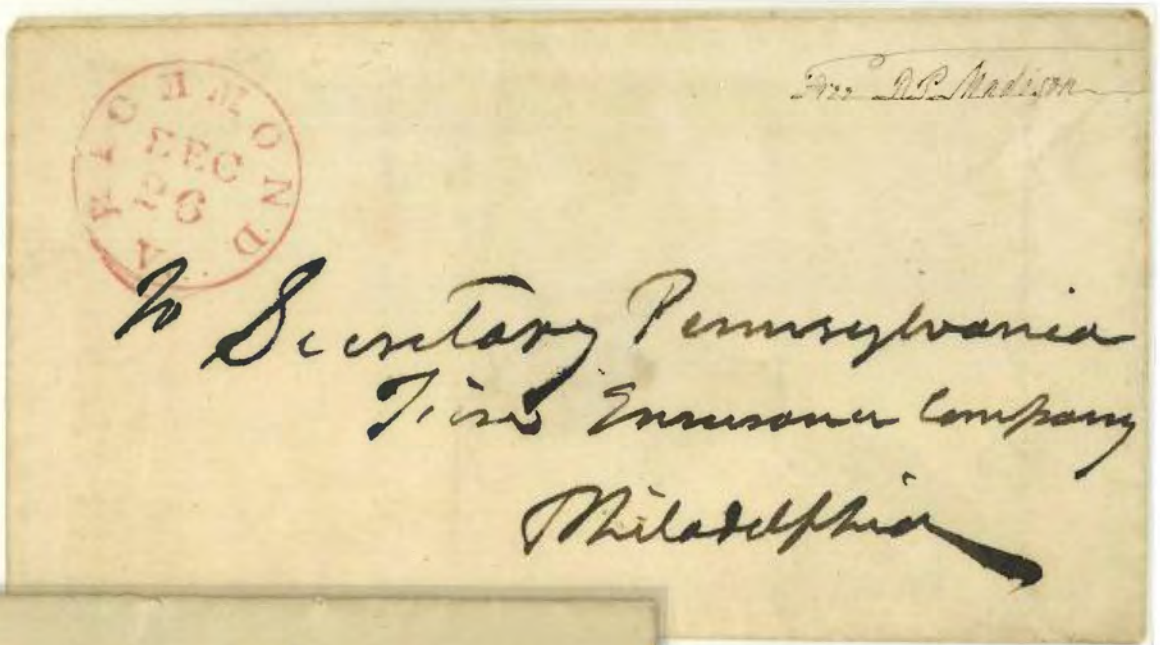 RICHMOND Va
DEC
26
Free D.P. Madison
To Secretary Pennsylvania
Fire Ensurance Company
Philadelphia